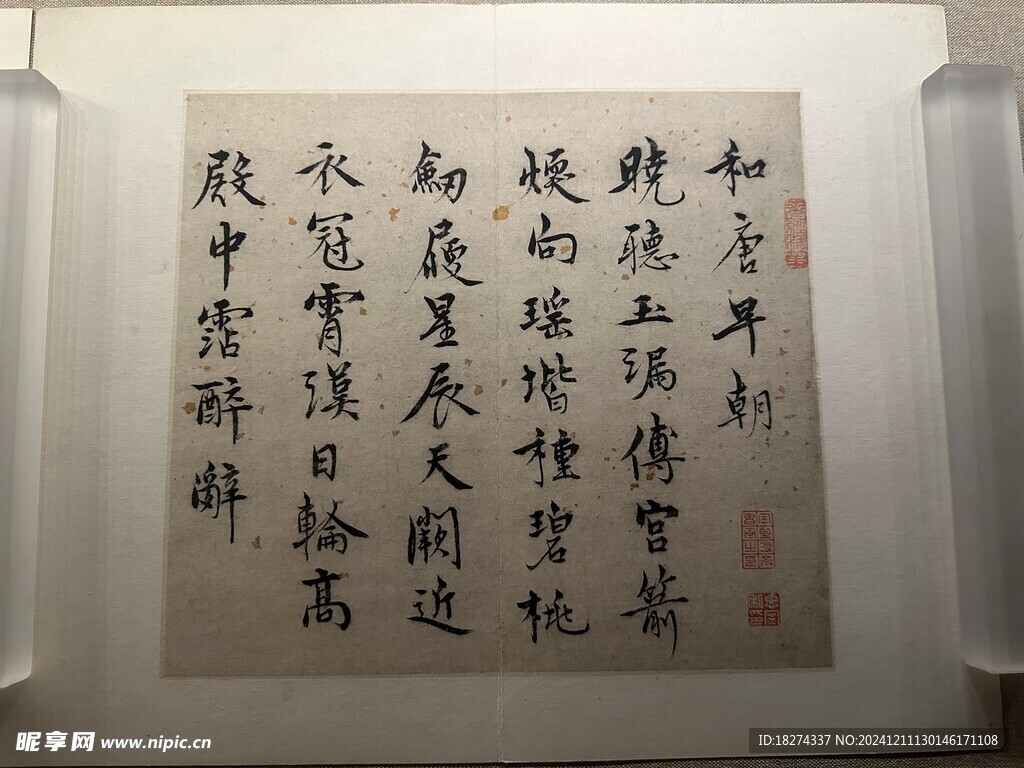 和唐早朝
曉聽玉漏傳宮箭
煖向瑶堦種碧桃
劒履星辰天闕近
衣冠霄漢日輪高
殿中霑醉辭
昵享网 www.nipic.cn
ID:18274337 NO:20241211130146171108